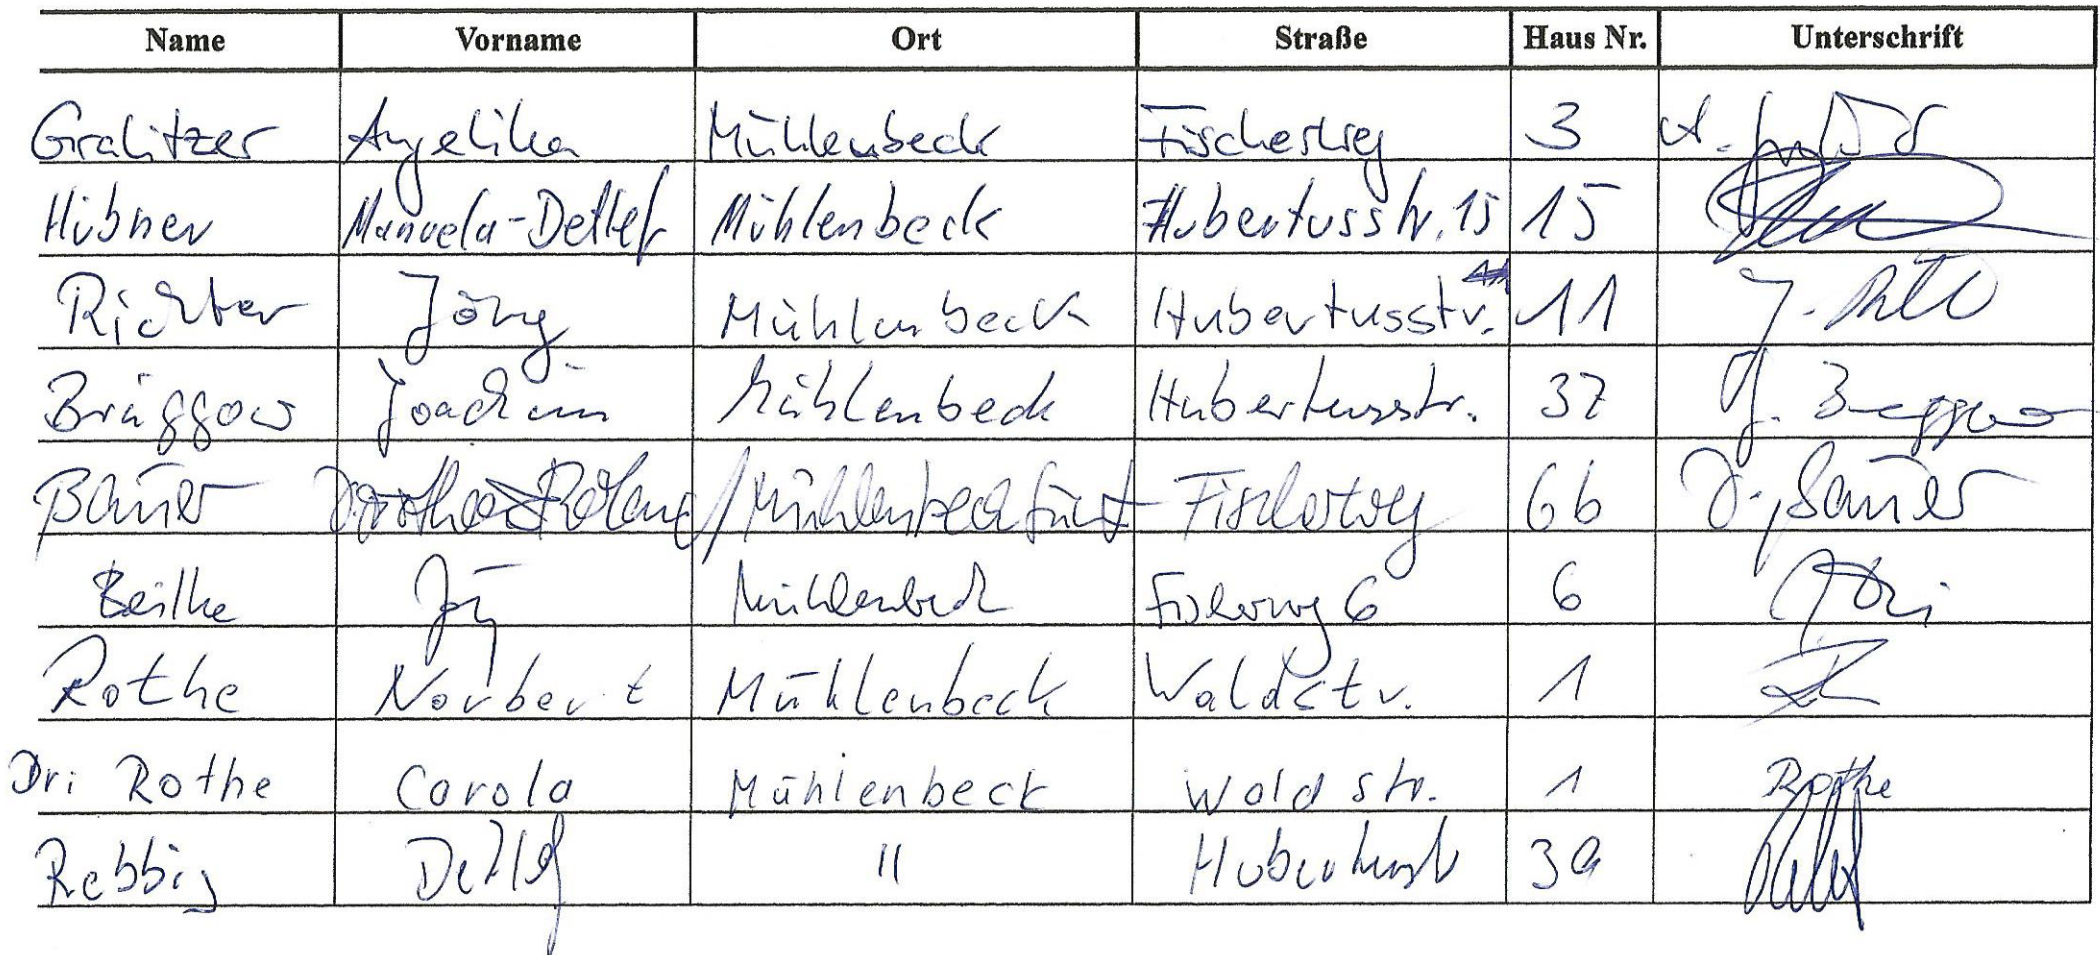 Name Vorname Ort Straße Haus Nr. Unterschrift
Gralitzer Angelika Mühlenbeck Fischerweg 3 A.
Hübner Manuela-Detlef Mühlenbeck Hubertusstr. 15 15
Richter Jörg Mühlenbeck Hubertusstr. 11 J.
Brüggow Joachim Mühlenbeck Hubertusstr. 37 J. Brüggow
Bauer Mühlenbeck Fischerweg 6b D. Bauer
Beilke Mühlenbeck Fischerweg 6 6
Rothe Norbert Mühlenbeck Waldstr. 1
Dri Rothe Carola Mühlenbeck Waldstr. 1 Rothe
Rebbig Detlef " Hubertusstr 39